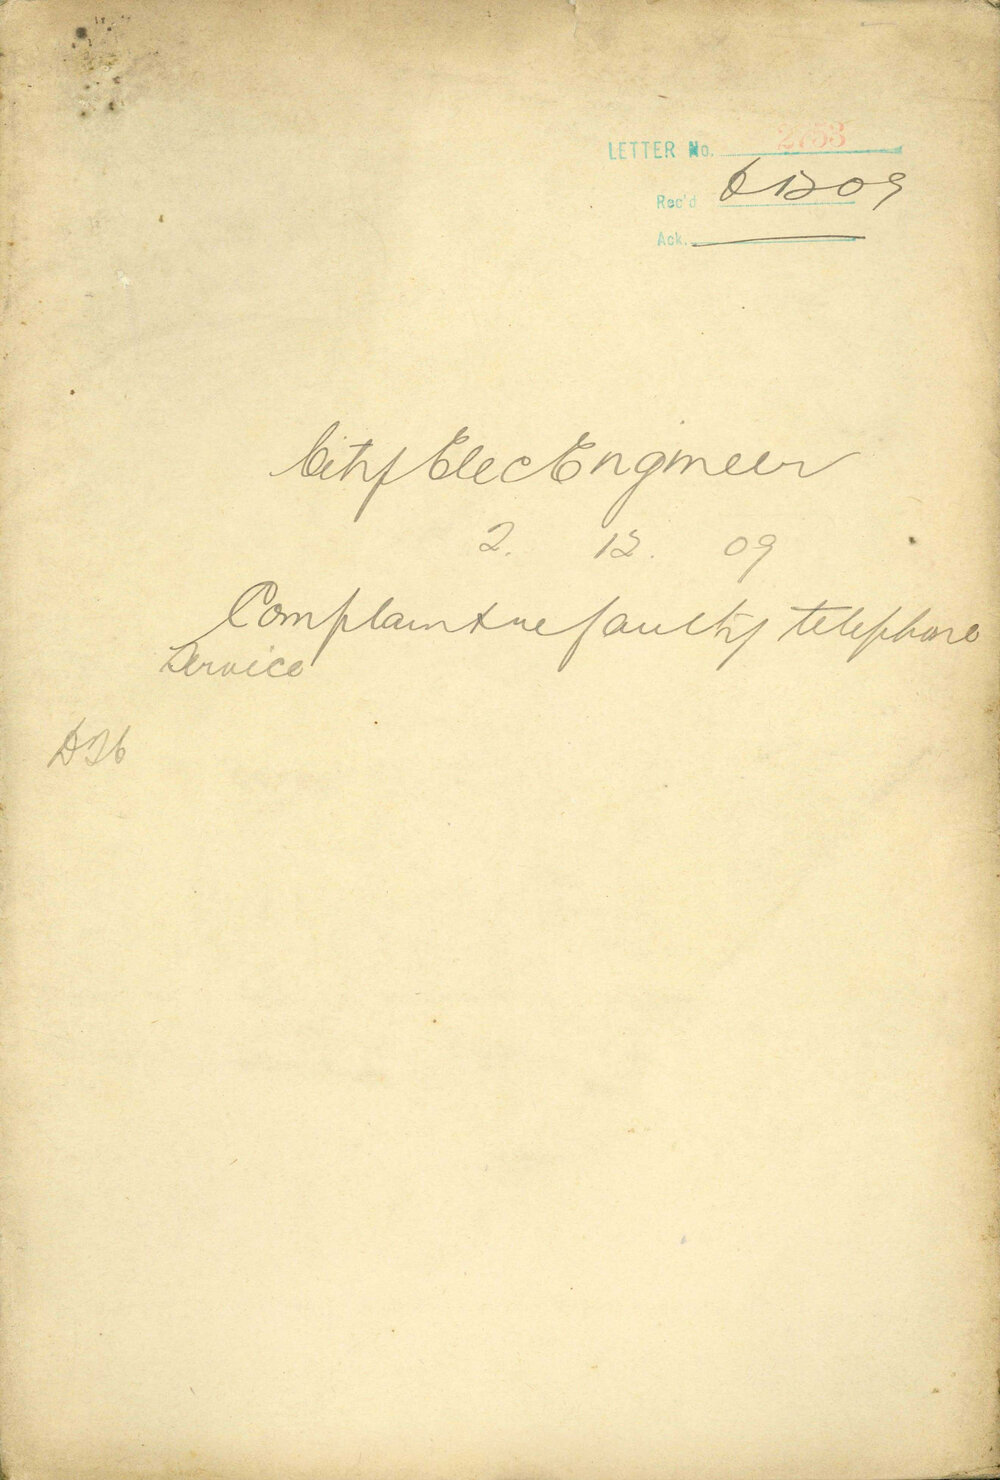 LETTER No. 2753
Rec'd 6 12 09
Ack.
City Elec Engineer
2. 12. 09
Complaint re faulty telephone
Service